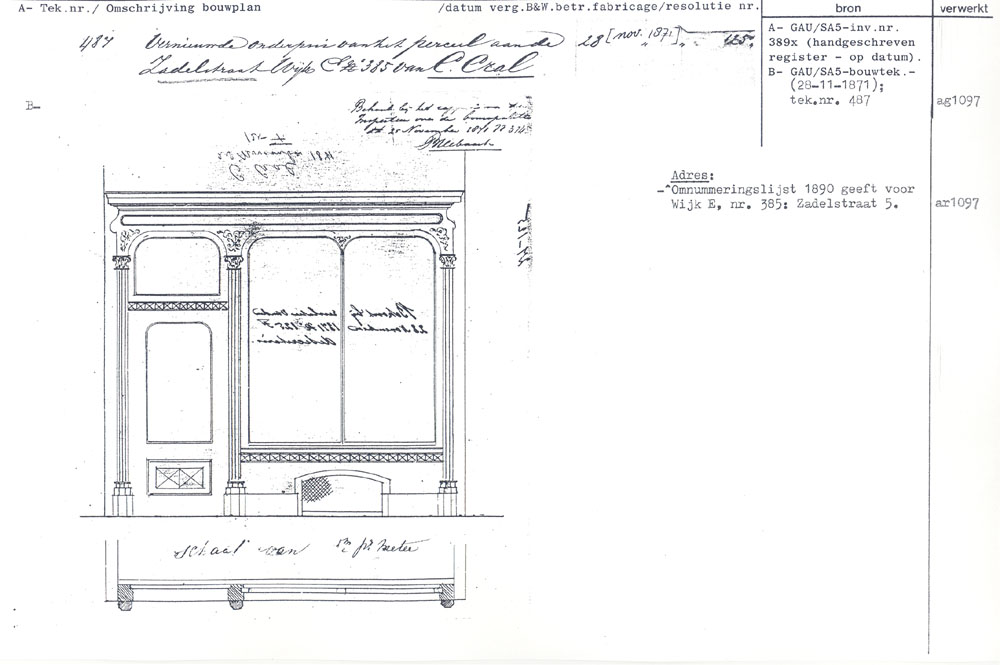 A- Tek.nr./ Omschrijving bouwplan /datum verg.B&W.betr.fabricage/resolutie nr. bron verwerkt
487 Vernieuwde onderpui van het perceel aan de 28 [nov. 1871] 125.
Zadelstraat Wijk E No 385 van C. Cral
A- GAU/SA5-inv.nr.
389x (handgeschreven
register - op datum).
B- GAU/SA5-bouwtek.-
(28-11-1871);
tek.nr. 487 ag1097
B-
Behoort bij het
Inspecteur over de bouwpolitie
dd 25 November 1871 N
Adres:
-"Omnummeringslijst 1890 geeft voor
Wijk E, nr. 385: Zadelstraat 5. ar1097
C Cral
Behoort bij
28 November
1871 No 125 F
schaal van pr meter